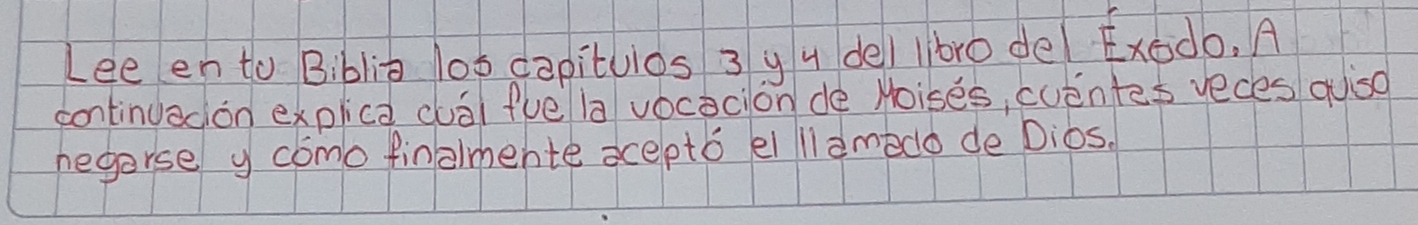 Lee en tu Biblia los capítulos 3 y 4 del libro del Éxodo. A
continuación explica cuál fue la vocación de Moisés, cuántas veces quiso
negarse y cómo finalmente aceptó el llamado de Dios.